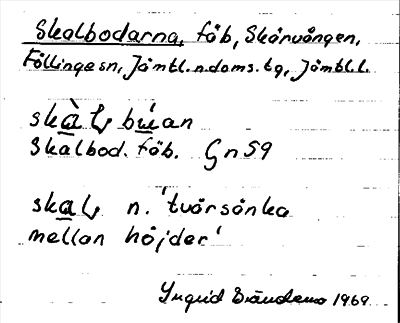 Skalbodarna, fäb, Skärvången,
Föllinge sn, Jämtl.n.doms.tg, Jämtl.l.
skàḷ bùan
Skalbod. fäb. Gn 59
skaḷ n. 'tvärsänka
mellan höjder'
Yngrid 1969